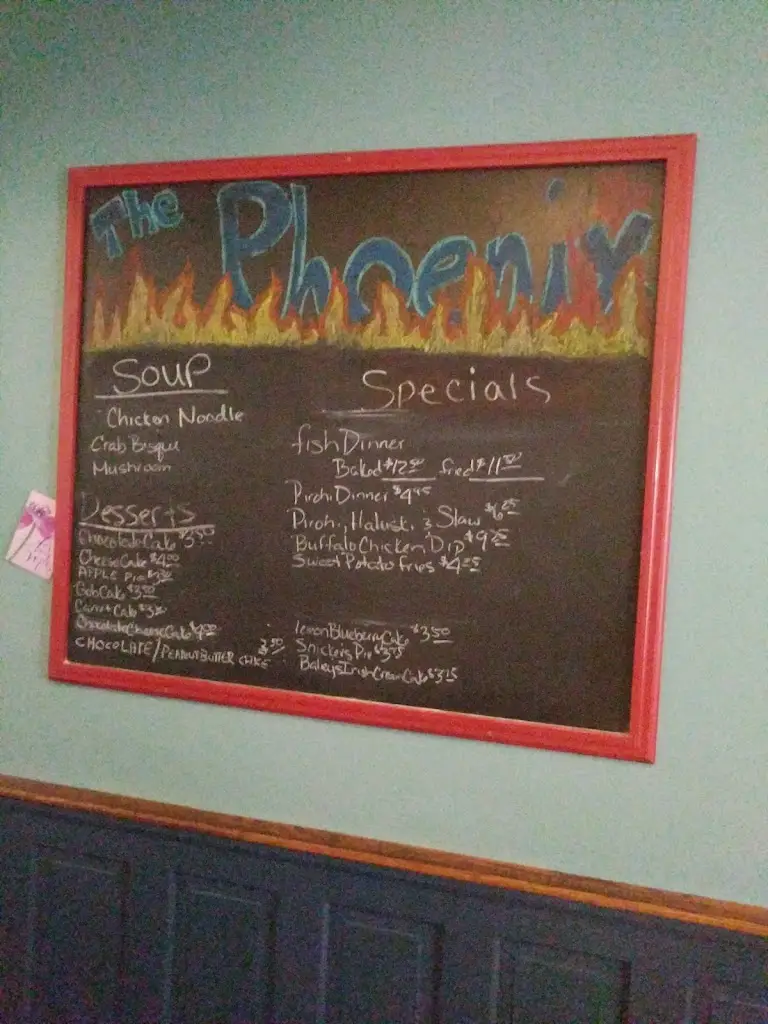 The Phoenix
Soup
Chicken Noodle
Crab Bisque
Mushroom
Desserts
Chocolate Cake
Cheese Cake $4.00
APPLE Pie
Gob Cake $3.50
Carrot Cake
Chocolate Cheese Cake
CHOCOLATE/PEANUT BUTTER CAKE 3.50
Specials
fish Dinner
Baked $12.00 fried $11.00
Pirohi Dinner
Pirohi, Haluski & Slaw
Buffalo Chicken Dip
Sweet Potato fries
lemon Blueberry Cake $3.50
Snickers Pie $3.75
Baleys Irish Cream Cake $3.75